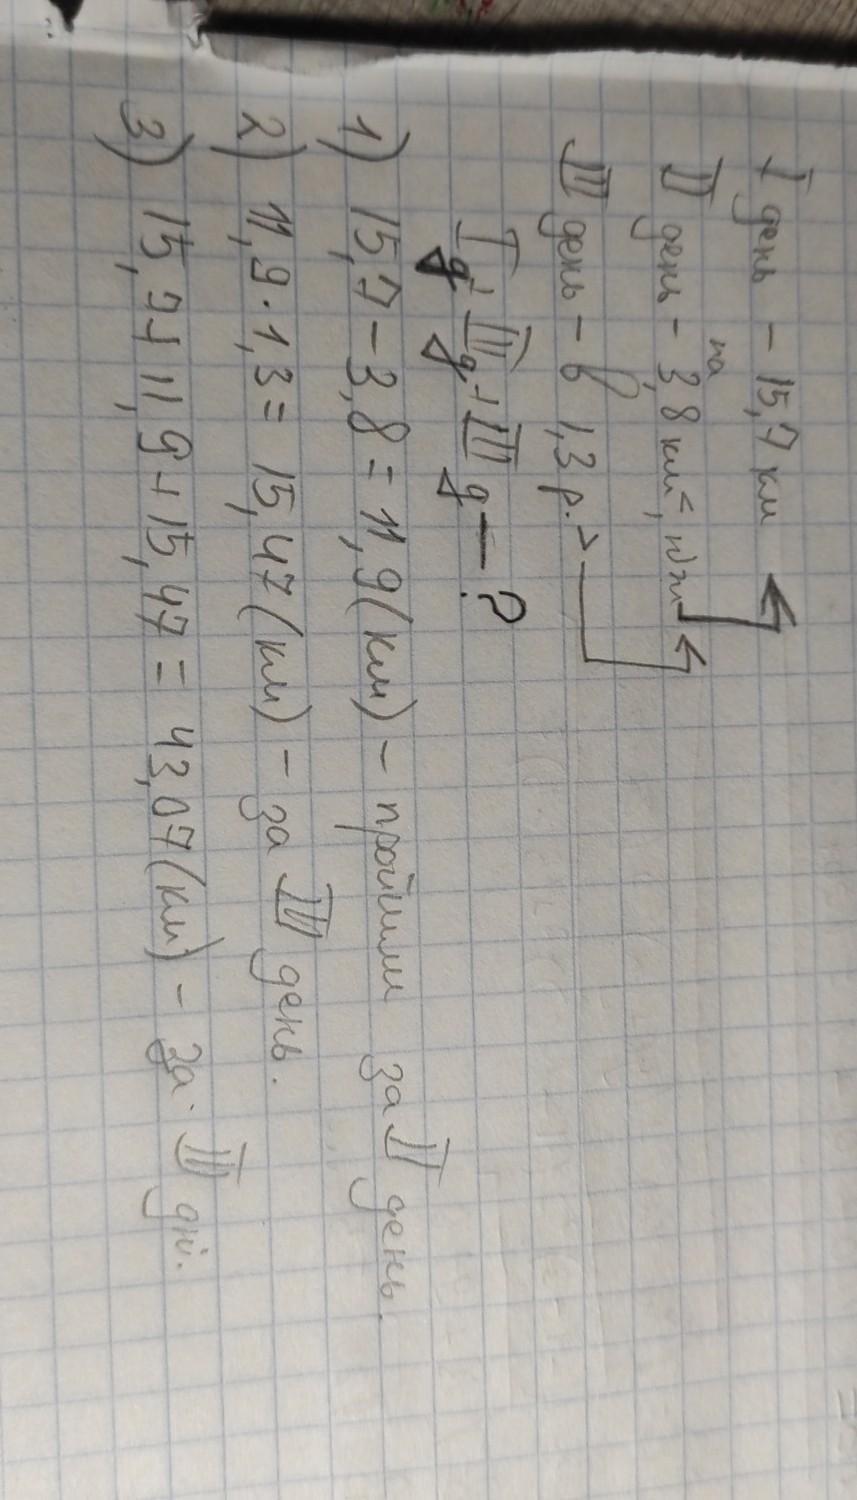 I день - 15,7 км
II день - на 3,8 км <, ніж
III день - в 1,3 р. >
I д + II д + III д - ?
1) 15,7 - 3,8 = 11,9 (км) - пройшли за II день.
2) 11,9 · 1,3 = 15,47 (км) - за III день.
3) 15,7 + 11,9 + 15,47 = 43,07 (км) - за III дні.